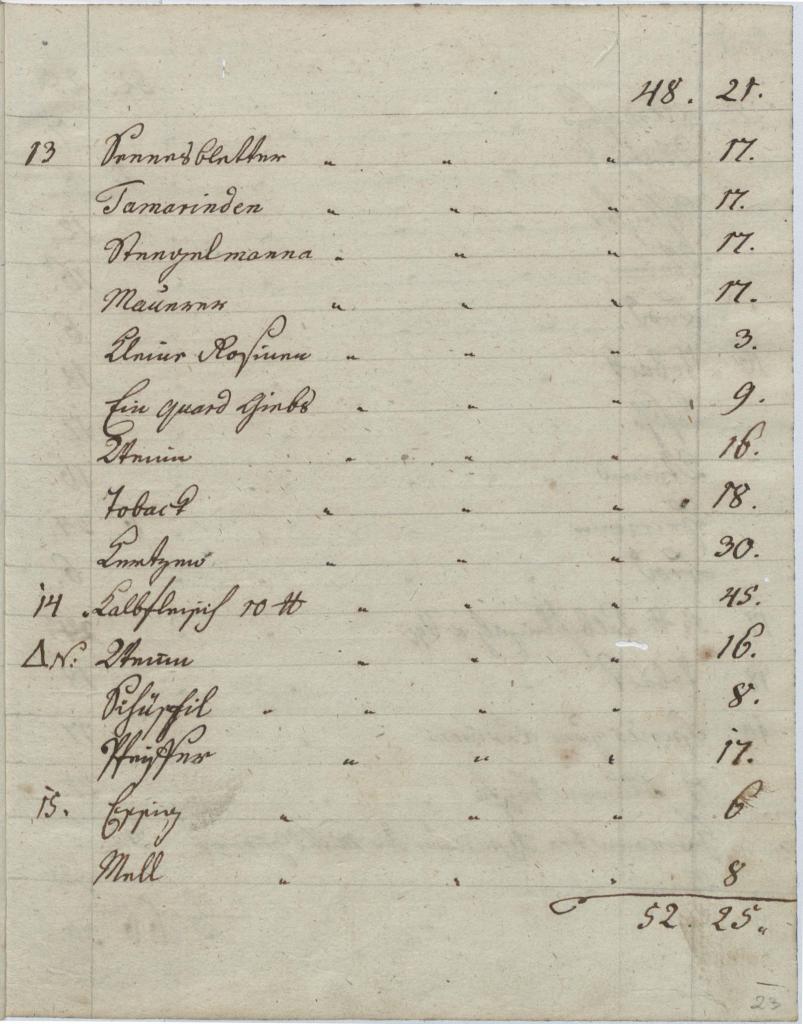 48. 21.
13 Sennesbletter " " " 17.
Tamarinden " " " 17.
Stengelmanna " " " 17.
Mauerer " " " 17.
Kleine Rosinen " " " 3.
Ein quard Giebs " " " 9.
Wein " " " 16.
Toback " " " 18.
Kertzen " " " 30.
14 Kalbfleisch 10 ℔ " " " 45.
Δ N: Wein " " " 16.
" " " " 8.
Pfeiffer " " " 17.
15. Essig " " " 6
Mell " " " 8
52. 25.
23